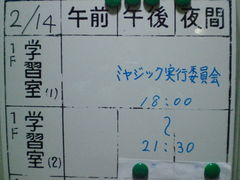 2/14 午前 午後 夜間
1F 学習室(1)
ミャジック実行委員会
18:00
〜
1F 学習室(2)
21:30